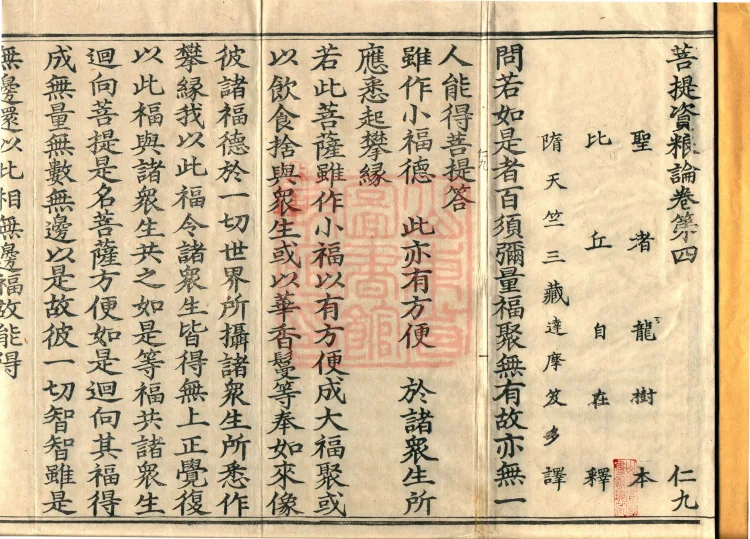 菩提資粮論卷第四 仁九
聖者龍樹本
比丘自在釋
隋天竺三藏達摩笈多譯
問若如是者百須彌量福聚無有故亦無一
人能得菩提答
雖作小福德 此亦有方便 於諸衆生所
應悉起攀緣
若此菩薩雖作小福以有方便成大福聚或
以飲食捨與衆生或以華香鬘等奉如來像
彼諸福德於一切世界所攝諸衆生所悉作
攀緣我以此福令諸衆生皆得無上正覺復
以此福與諸衆生共之如是等福共諸衆生
迴向菩提是名菩薩方便如是迴向其福得
成無量無數無邊以是故彼一切智智雖是
無邊還以此相無邊福故能得